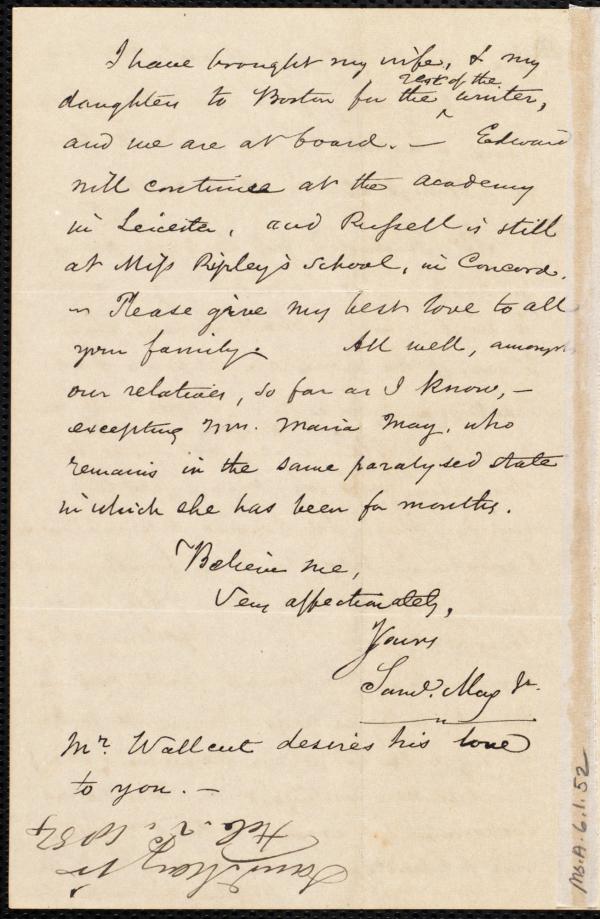 I have brought my wife, & my
rest of the
daughters to Boston for the ‸ winter,
and we are at board. — Edward
will continue at the academy
in Leicester, and Russell is still
at Miss Ripley's School, in Concord.
— Please give my best love to all
your family. All well, amongst
our relatives, so far as I know, —
excepting Mrs. Maria May, who
remains in the same paralysed state
in which she has been for months.
Believe me,
Very affectionately,
Yours
Saml. May Jr.
Mr. Wallcut desires his love
to you. —
Saml. May Jr
Feb. 2, 1854
Ms.A.6.1.52